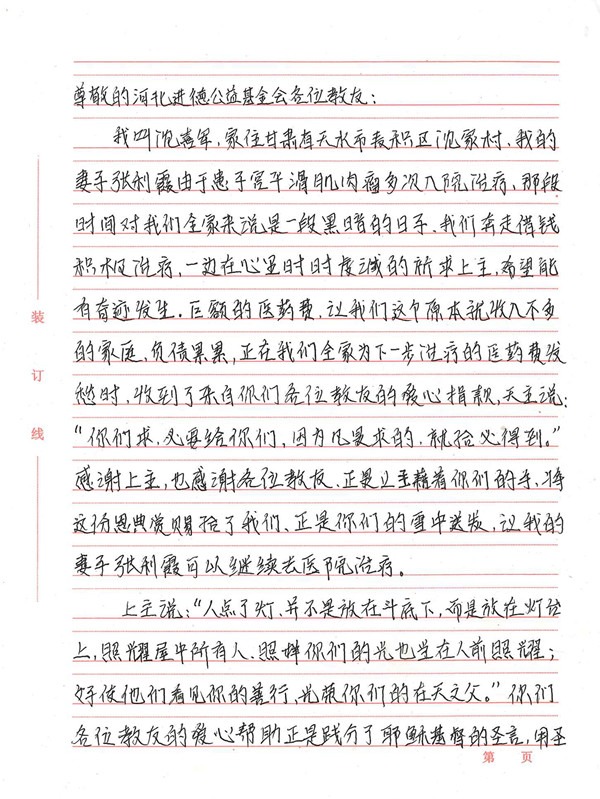 尊敬的河北进德公益基金会各位教友：
我叫沈喜军，家住甘肃省天水市麦积区沈家村，我的
妻子张利霞由于患子宫平滑肌肉瘤多次入院治疗，那段
时间对我们全家来说是一段黑暗的日子，我们奔走借钱
积极治疗，一边在心里时时虔诚的祈求上主，希望能
有奇迹发生。巨额的医药费，让我们这个原本就收入不多
的家庭，负债累累，正在我们全家为下一步治疗的医药费发
愁时，收到了来自你们各位教友的爱心捐款，天主说：
“你们求，必要给你们，因为凡是求的，就给必得到。”
感谢上主，也感谢各位教友，正是上主藉着你们的手，将
这份恩典赏赐给了我们，正是你们的雪中送炭，让我的
妻子张利霞可以继续去医院治疗。
上主说：“人点了灯，并不是放在斗底下，而是放在灯台
上，照耀屋中所有人，照样你们的光也当在人前照耀；
好使他们看见你的善行，光荣你们的在天之父。”你们
各位教友的爱心帮助正是践行了耶稣基督的圣言，用圣
装
订
线
第 页